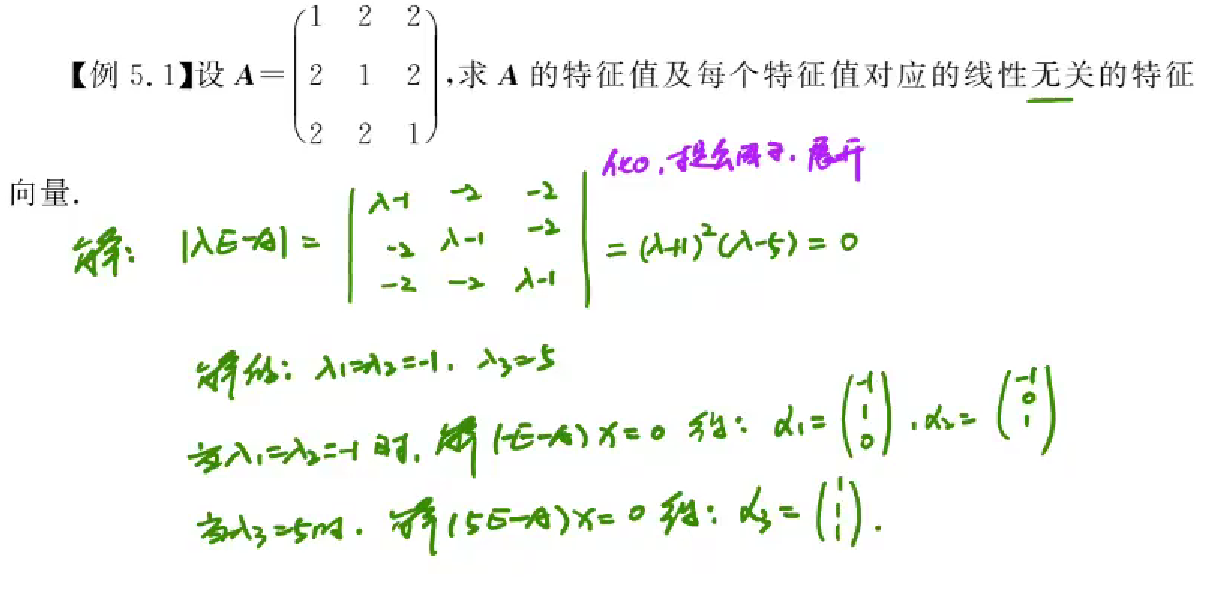 【例 5.1】设 A=(1 2 2; 2 1 2; 2 2 1),求 A 的特征值及每个特征值对应的线性无关的特征
向量.
化0,提公因子,展开
解: |λE-A| = |λ-1 -2 -2; -2 λ-1 -2; -2 -2 λ-1| = (λ+1)²(λ-5) = 0
解得: λ₁=λ₂=-1, λ₃=5
当λ₁=λ₂=-1时, 解(-E-A)x=0 得: α₁=(-1; 1; 0), α₂=(-1; 0; 1)
当λ₃=5时. 解(5E-A)x=0 得: α₃=(1; 1; 1).